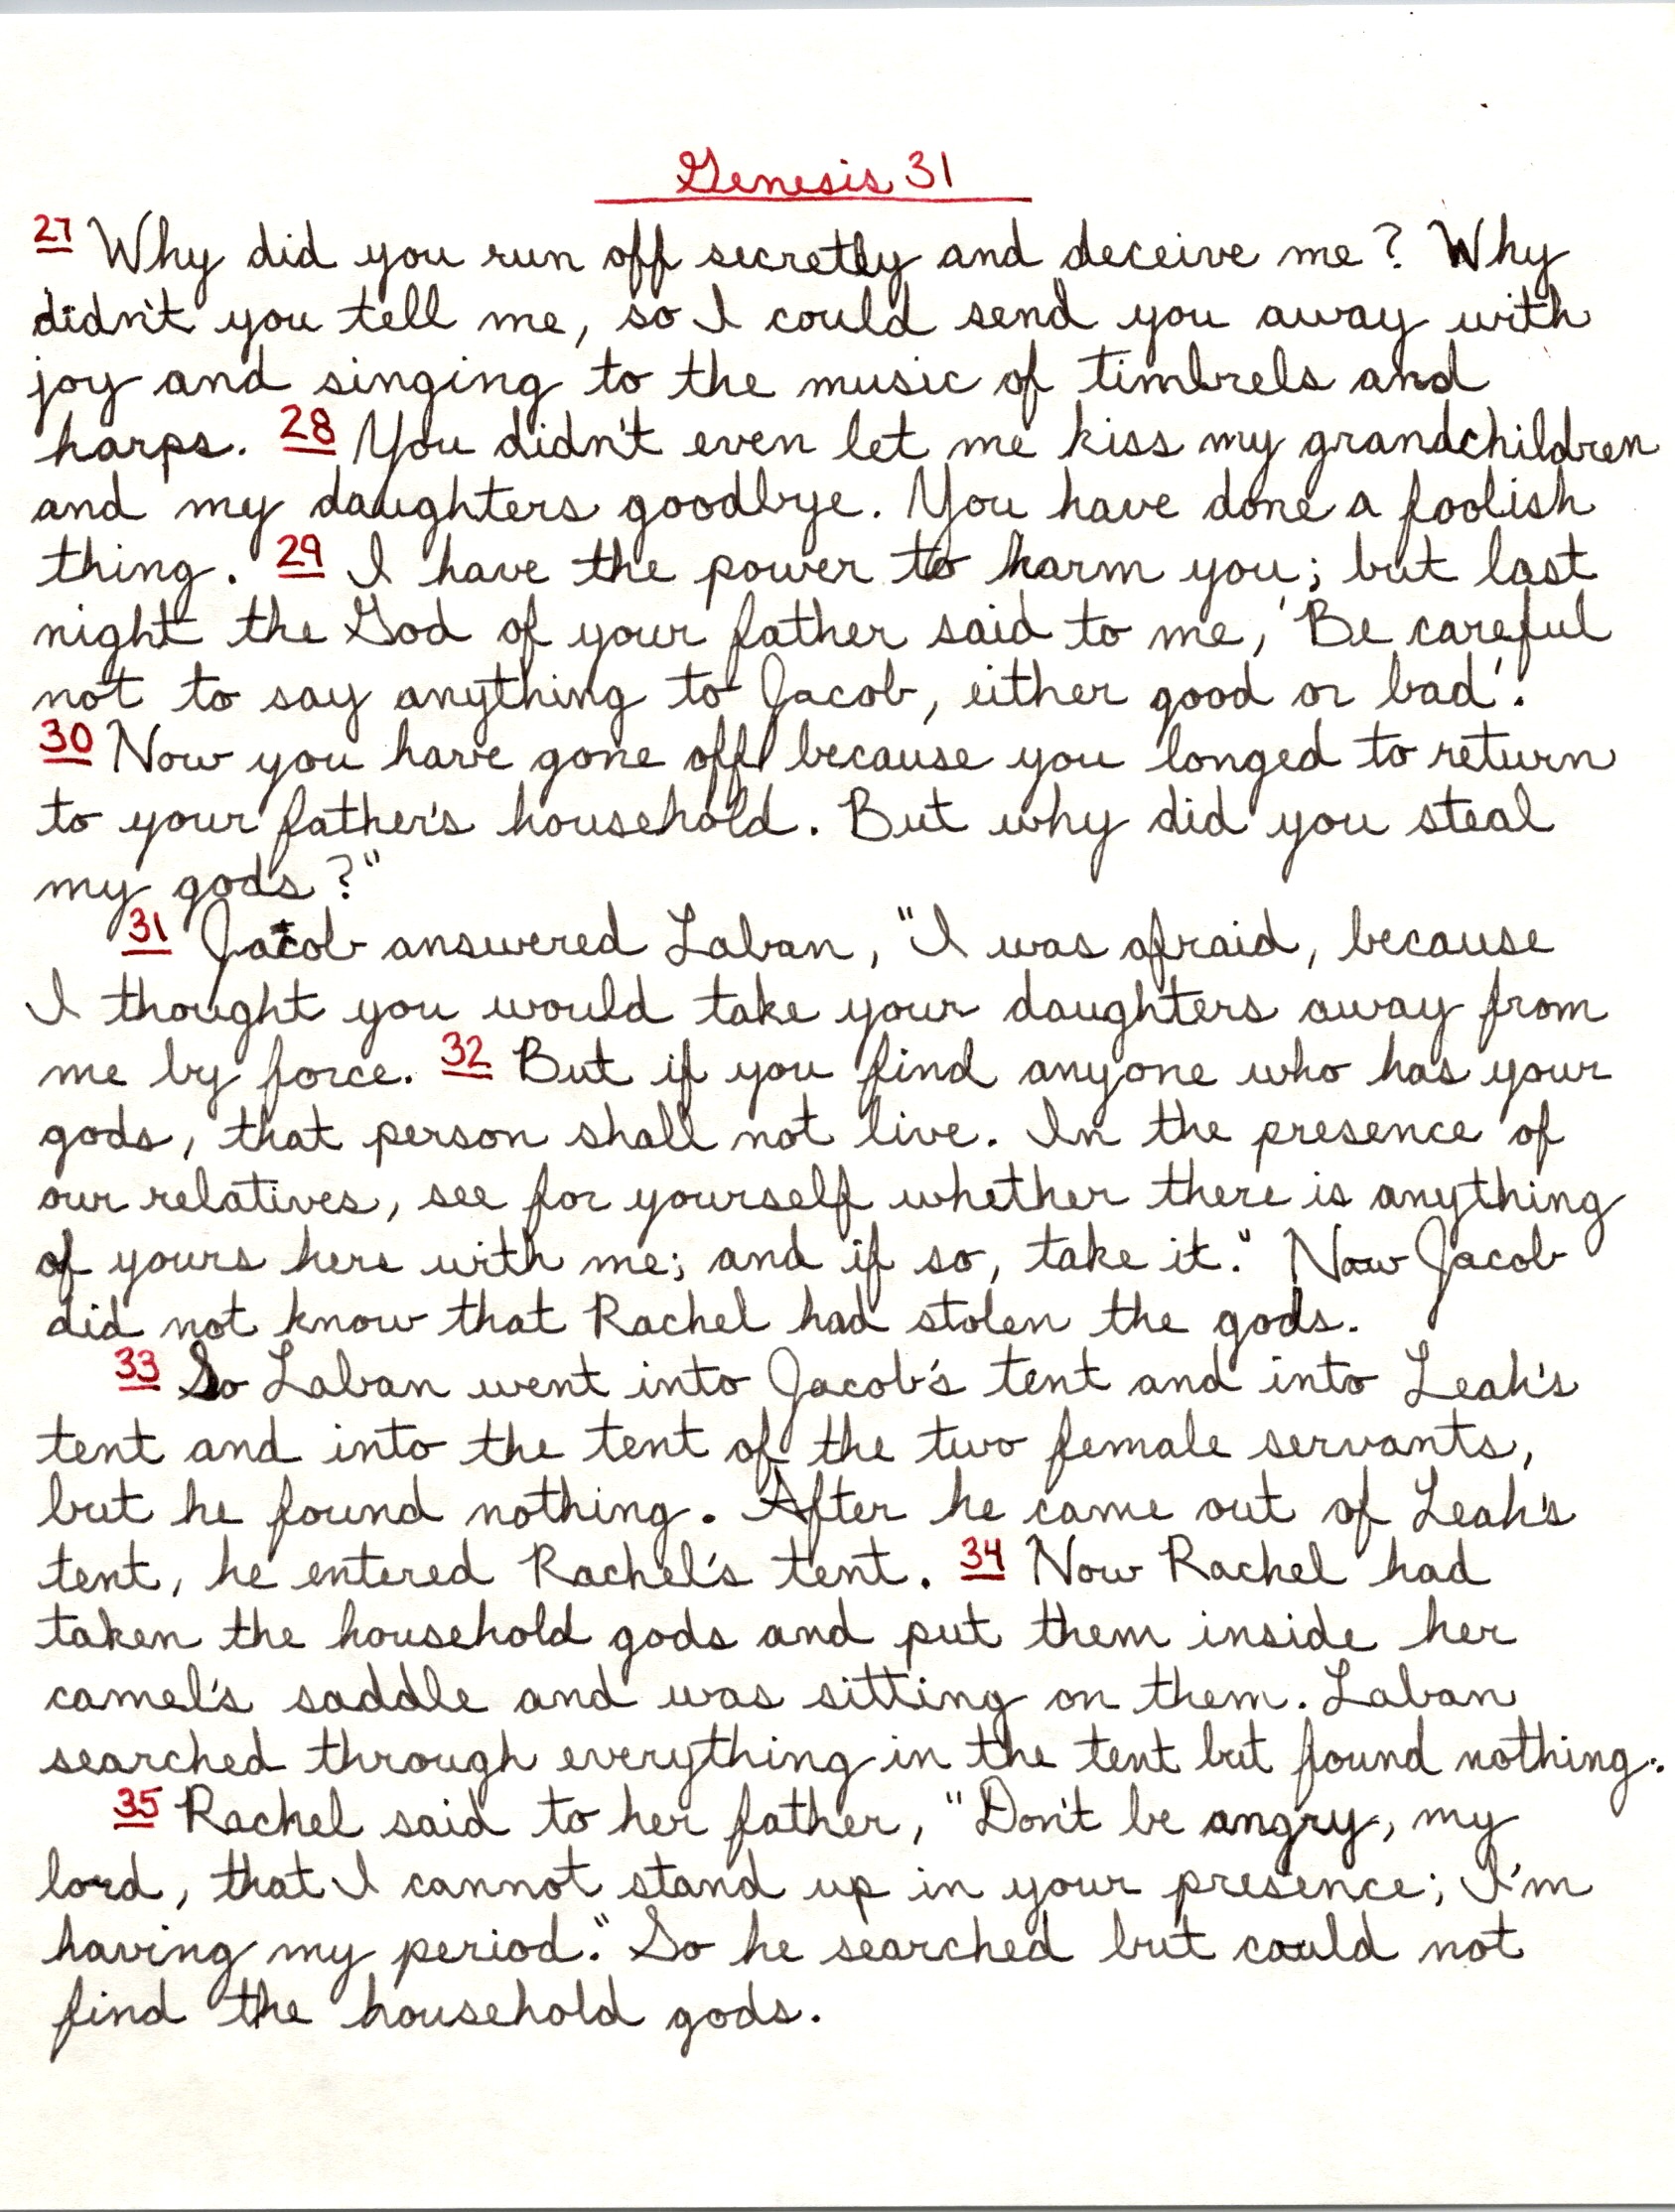 Genesis 31
27 Why did you run off secretly and deceive me? Why
didn't you tell me, so I could send you away with
joy and singing to the music of timbrels and
harps. 28 You didn't even let me kiss my grandchildren
and my daughters goodbye. You have done a foolish
thing. 29 I have the power to harm you; but last
night the God of your father said to me, 'Be careful
not to say anything to Jacob, either good or bad.'
30 Now you have gone off because you longed to return
to your father's household. But why did you steal
my gods?"
31 Jacob answered Laban, "I was afraid, because
I thought you would take your daughters away from
me by force. 32 But if you find anyone who has your
gods, that person shall not live. In the presence of
our relatives, see for yourself whether there is anything
of yours here with me; and if so, take it." Now Jacob
did not know that Rachel had stolen the gods.
33 So Laban went into Jacob's tent and into Leah's
tent and into the tent of the two female servants,
but he found nothing. After he came out of Leah's
tent, he entered Rachel's tent. 34 Now Rachel had
taken the household gods and put them inside her
camel's saddle and was sitting on them. Laban
searched through everything in the tent but found nothing.
35 Rachel said to her father, "Don't be angry, my
lord, that I cannot stand up in your presence; I'm
having my period." So he searched but could not
find the household gods.